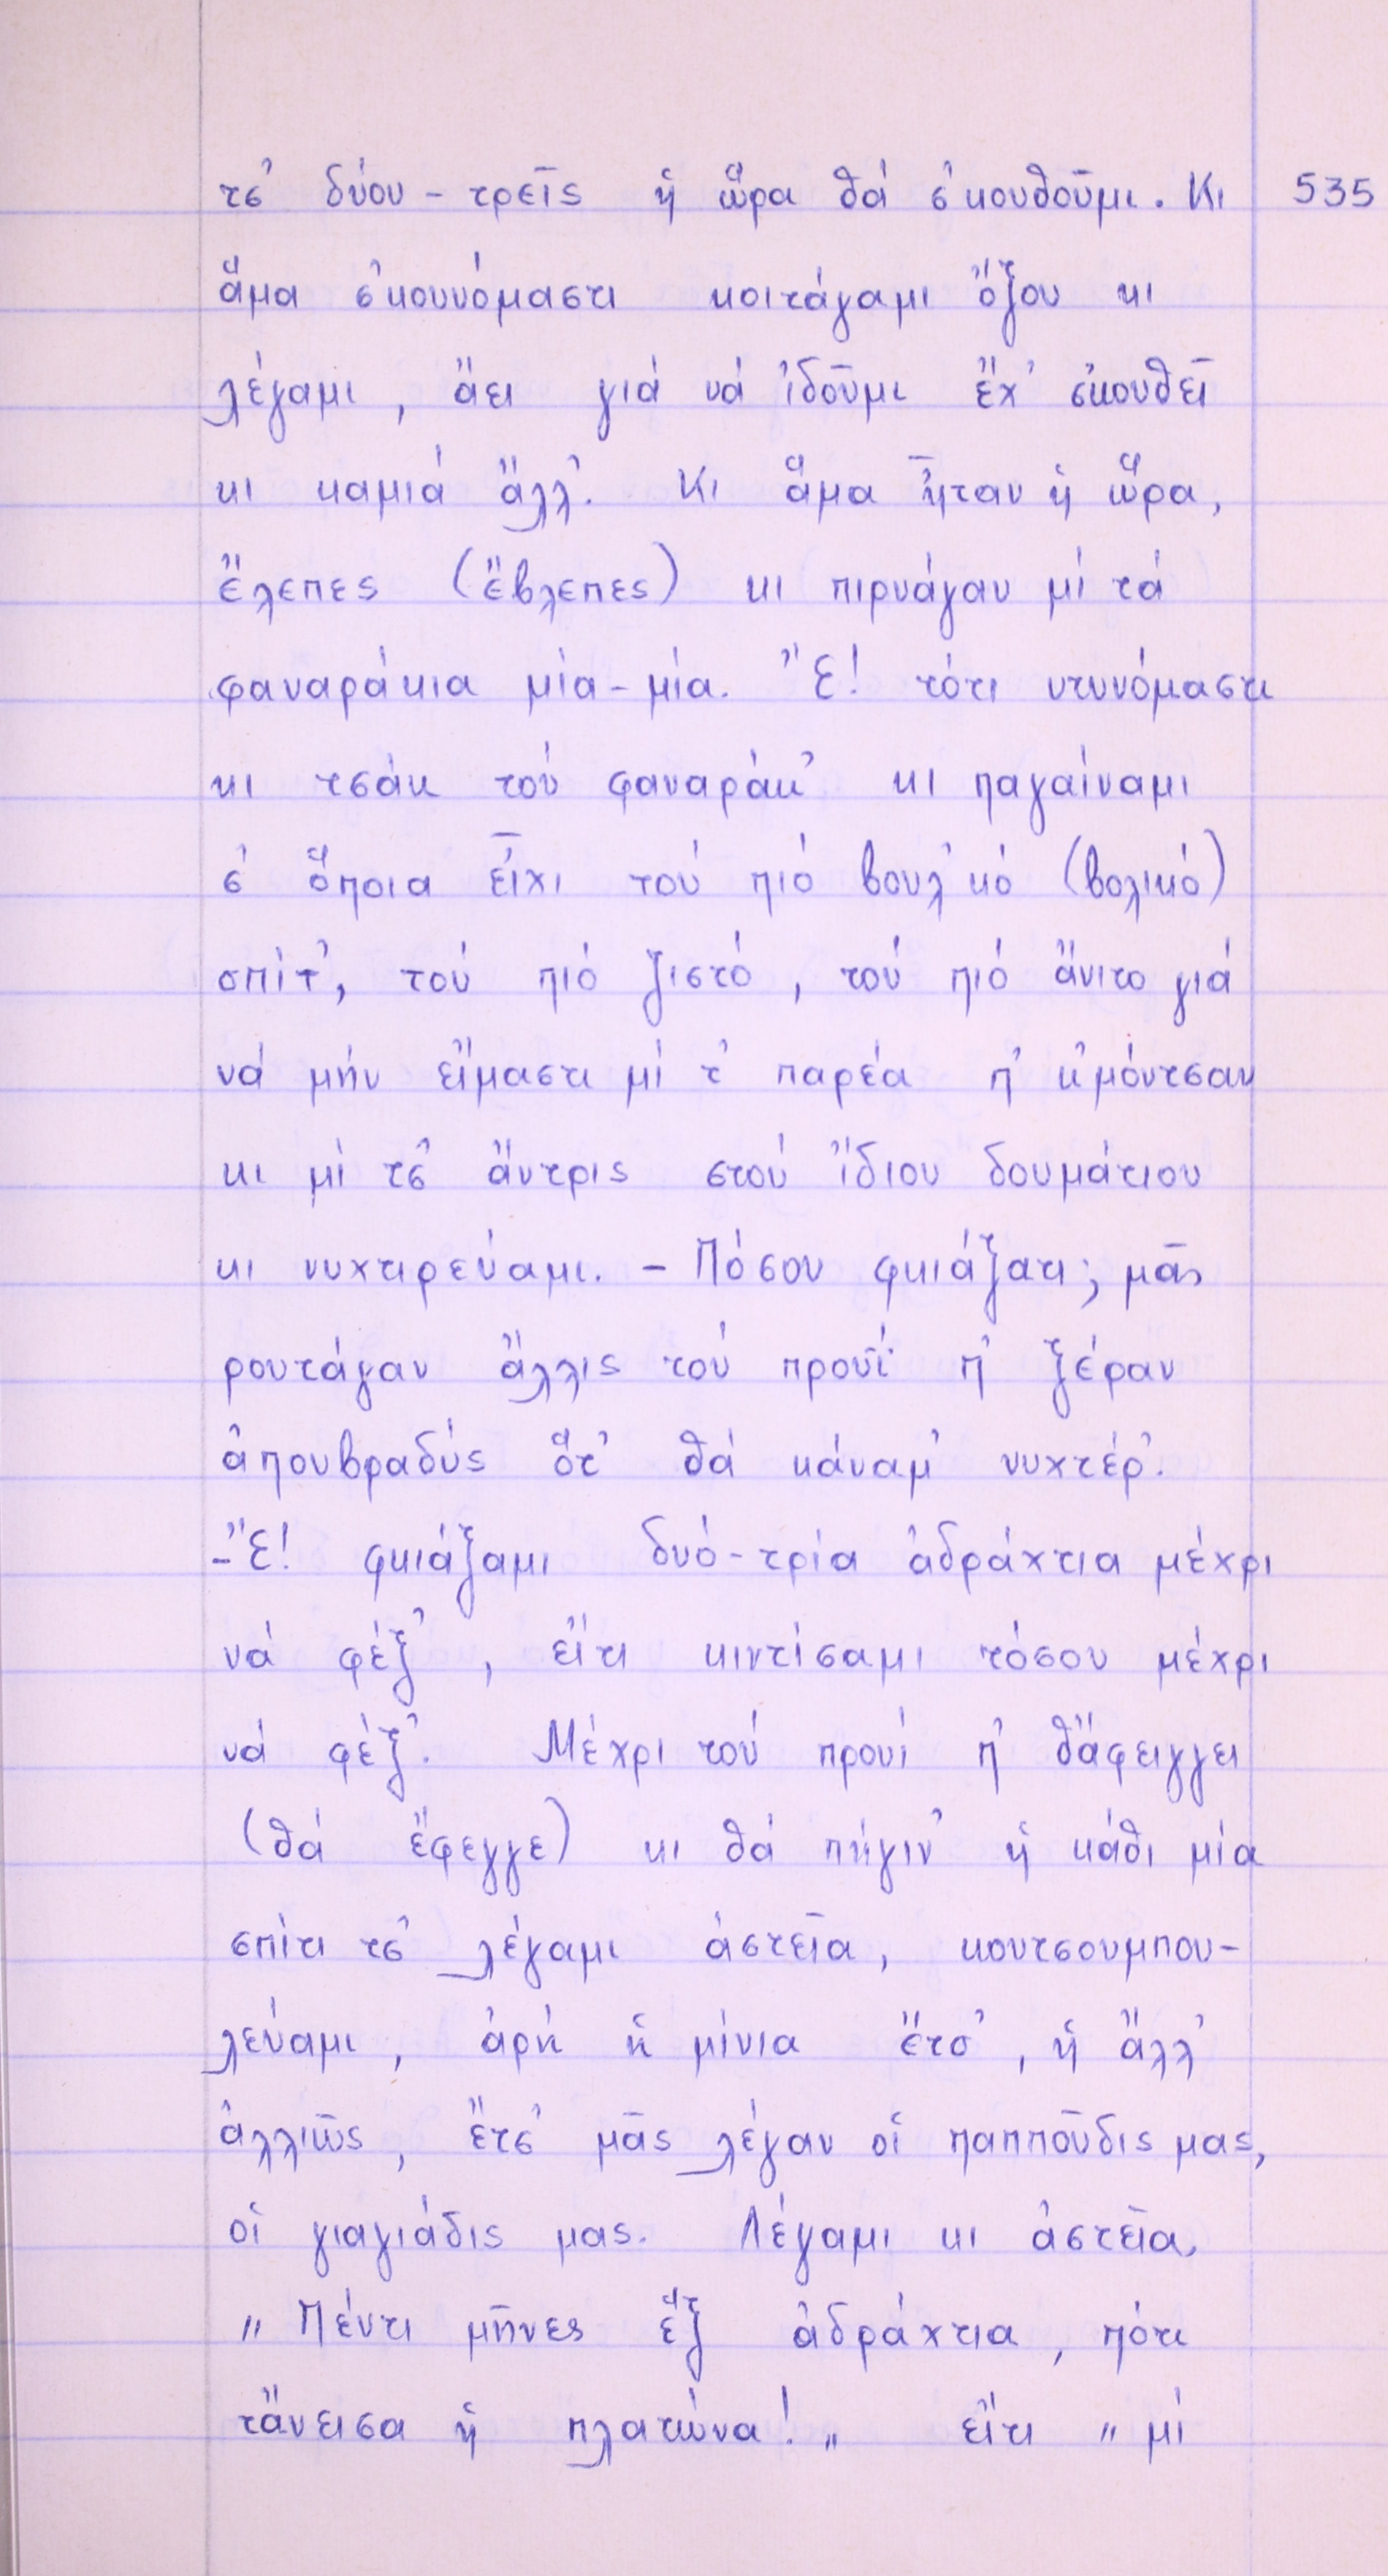 τσ' δύου - τρεῖς ἡ ὥρα θά σ'κουθοῦμι. Κι 535
ἅμα σ'κουνόμαστι κοιτάγαμι ὄξου κι
λέγαμι, ἄει γιά νά ἰδοῦμι ἔχ' σ'κουθεῖ
κι καμιά ἄλλ'. Κι ἅμα ἦταν ἡ ὥρα,
ἔλεπες (ἔβλεπες) κι πιρνάγαν μί τά
φαναράκια μία-μία. Ἔ! τότι ντυνόμαστι
κι τσάκ τού φαναράκ' κι παγαίναμι
σ' ὅποια εἶχι τού πιό βουλ'κό (βολικό)
σπίτ', τού πιό ζιστό, τού πιό ἄνιτο γιά
νά μήν εἴμαστι μί τ' παρέα π' κ'μόντσαν
κι μί τσ' ἄντρις στού ἴδιου δουμάτιου
κι νυχτιρεύαμι. - Πόσου φκιάξατι; μᾶς
ρουτάγαν ἄλλις τού προυΐ π' ξέραν
ἀπουβραδύς ὅτ' θά κάναμ' νυχτέρ'.
-Ἔ! φκιάξαμι δυό-τρία ἀδράχτια μέχρι
νά φέξ', εἴτι κιντίσαμι τόσου μέχρι
νά φέξ'. Μέχρι τού προυί π' θἄφειγγει
(θά ἔφεγγε) κι θά πήγιν' ἡ κάθι μία
σπίτι τσ' λέγαμι ἀστεῖα, κουτσουμπου-
λεύαμι, ἀρή ἡ μίνια ἔτσ', ἡ ἄλλ'
ἀλλιῶς, ἔτσ' μᾶς λέγαν οἱ παπποῦδις μας,
οἱ γιαγιάδις μας. Λέγαμι κι ἀστεῖα,
" Πέντι μῆνες ἕξ ἀδράχτια, πότι
τἄνεισα ἡ πλατώνα! " εἴτι " μί